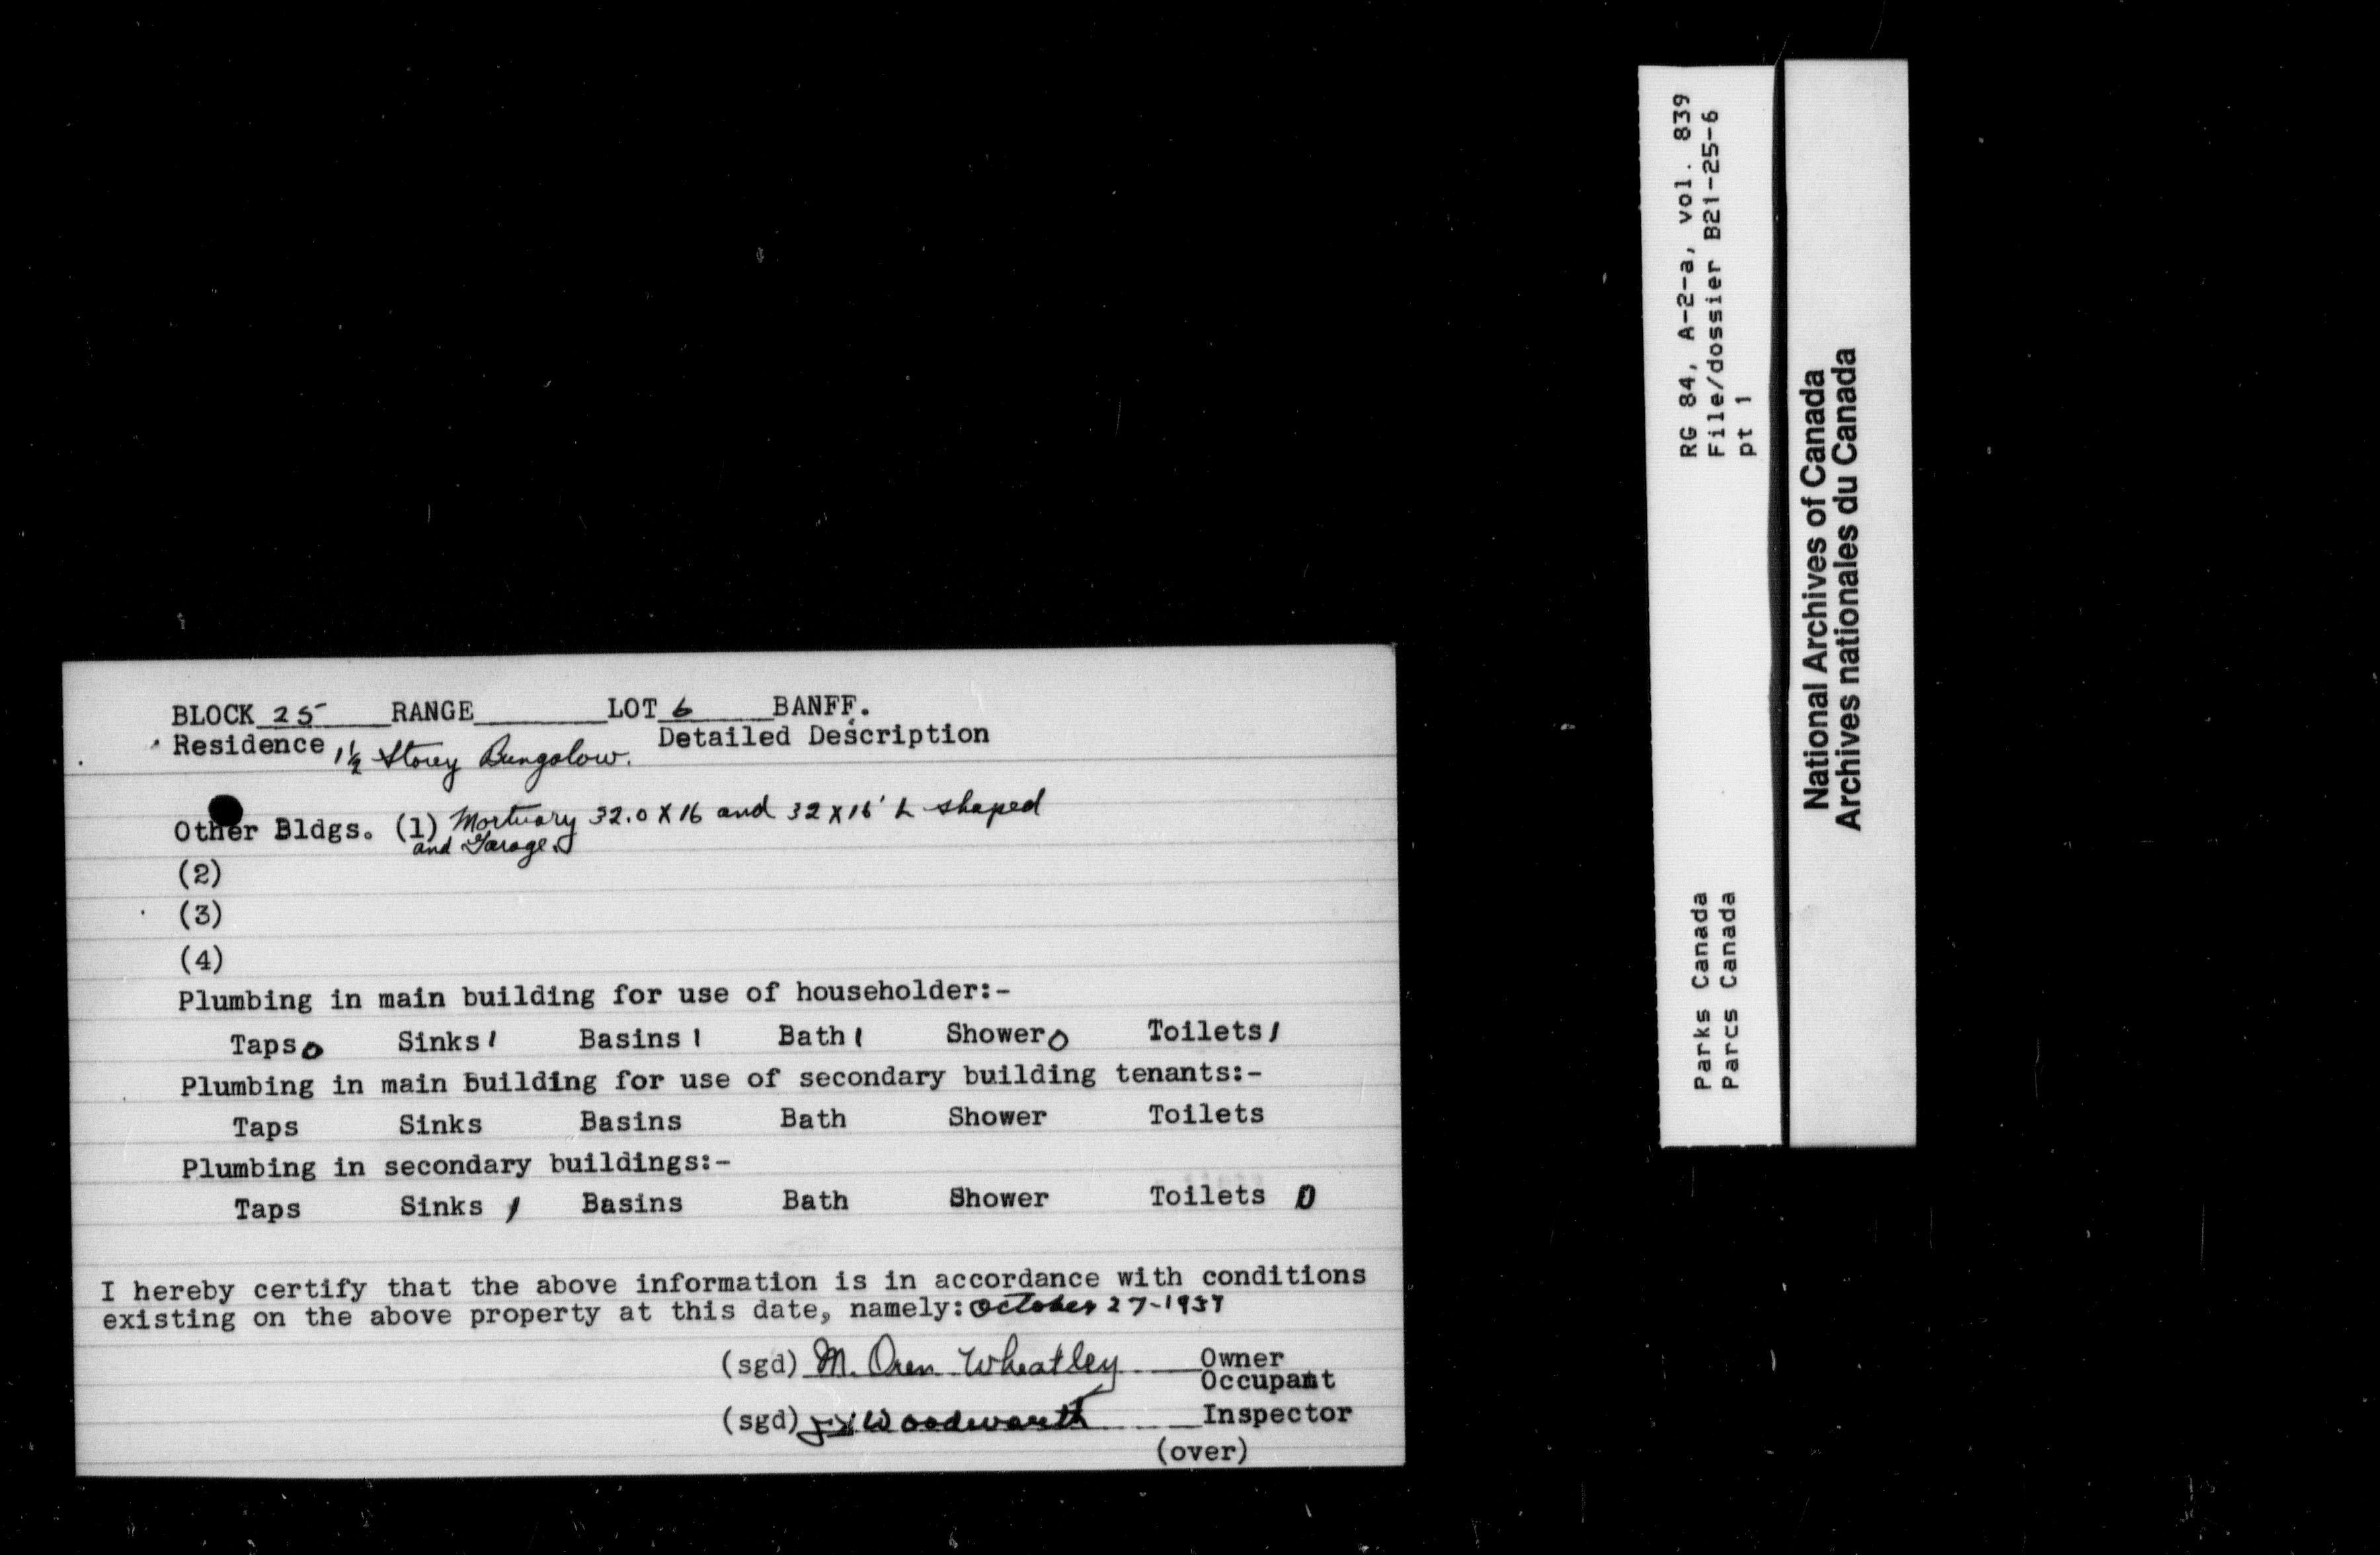 BLOCK 25 RANGE LOT 6 BANFF.
Residence 1½ Storey Bungalow. Detailed Description
Other Bldgs. (1) Mortuary 32.0 X 16 and 32 X 16' L shaped
and Garage.
(2)
(3)
(4)
Plumbing in main building for use of householder:-
Taps 0 Sinks 1 Basins 1 Bath 1 Shower 0 Toilets 1
Plumbing in main building for use of secondary building tenants:-
Taps Sinks Basins Bath Shower Toilets
Plumbing in secondary buildings:-
Taps Sinks 1 Basins Bath Shower Toilets 0
I hereby certify that the above information is in accordance with conditions
existing on the above property at this date, namely: October 27-1937
(sgd) M. Oren Wheatley Owner
Occupant
(sgd) Woodworth Inspector
(over)
RG 84, A-2-a, vol. 839
File/dossier B21-25-6
pt 1
Parks Canada
Parcs Canada
National Archives of Canada
Archives nationales du Canada